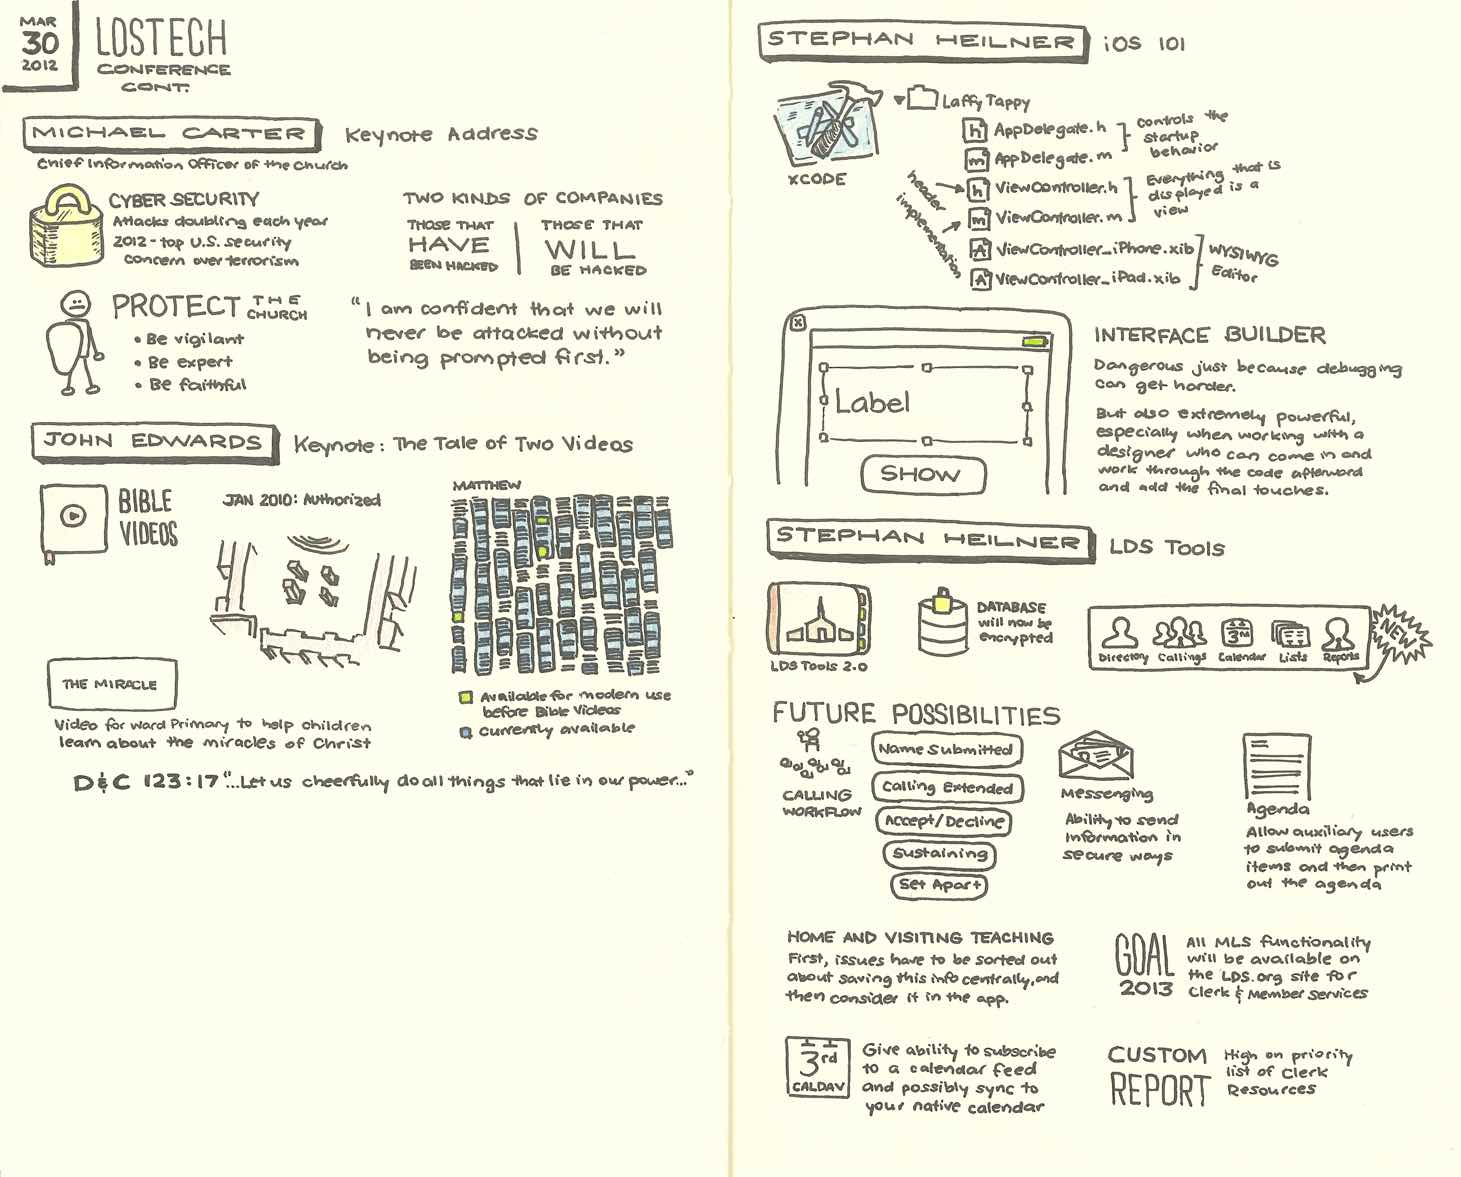 MAR
30
2012
LDSTECH
CONFERENCE
CONT.
MICHAEL CARTER Keynote Address
Chief Information Officer of the Church
CYBER SECURITY
Attacks doubling each year
2012 - top U.S. security
concern over terrorism
TWO KINDS OF COMPANIES
THOSE THAT
HAVE
BEEN HACKED
THOSE THAT
WILL
BE HACKED
PROTECT THE CHURCH
• Be vigilant
• Be expert
• Be faithful
"I am confident that we will
never be attacked without
being prompted first."
JOHN EDWARDS Keynote: The Tale of Two Videos
BIBLE
VIDEOS
JAN 2010: Authorized
MATTHEW
THE MIRACLE
Video for ward Primary to help children
learn about the miracles of Christ
Available for modern use
before Bible Videos
Currently available
D&C 123:17 "...Let us cheerfully do all things that lie in our power..."
STEPHAN HEILNER iOS 101
XCODE
Laffy Tappy
h AppDelegate.h
m AppDelegate.m
controls the
startup
behavior
header
implementation
h ViewController.h
m ViewController.m
Everything that is
displayed is a
view
A ViewController_iPhone.xib
A ViewController_iPad.xib
WYSIWYG
Editor
x
Label
SHOW
INTERFACE BUILDER
Dangerous just because debugging
can get harder.
But also extremely powerful,
especially when working with a
designer who can come in and
work through the code afterward
and add the final touches.
STEPHAN HEILNER LDS Tools
LDS Tools 2.0
DATABASE
will now be
encrypted
3RD
Directory Callings Calendar Lists Reports
NEW
FUTURE POSSIBILITIES
CALLING
WORKFLOW
Name Submitted
Calling Extended
Accept/Decline
Sustaining
Set Apart
Messenging
Ability to send
information in
secure ways
Agenda
Allow auxiliary users
to submit agenda
items and then print
out the agenda
HOME AND VISITING TEACHING
First, issues have to be sorted out
about saving this info centrally, and
then consider it in the app.
GOAL
2013
All MLS functionality
will be available on
the LDS.org site for
Clerk & Member Services
3rd
CALDAV
Give ability to subscribe
to a calendar feed
and possibly sync to
your native calendar
CUSTOM
REPORT
High on priority
list of Clerk
Resources